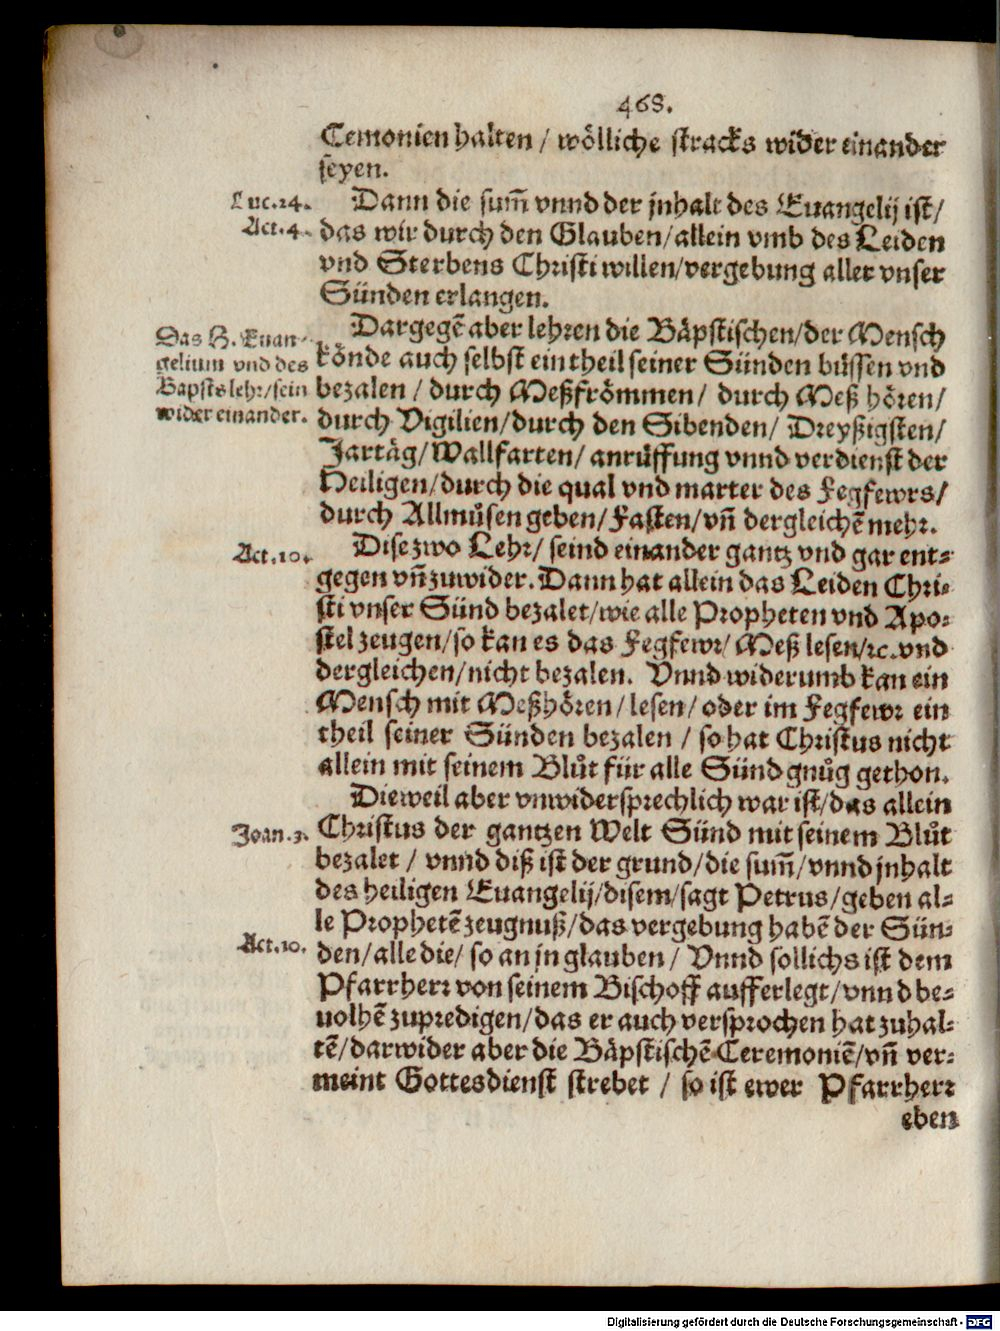 468.
Cemonien halten / wölliche stracks wider einander
seyen.
Luc. 24.
Act. 4.
Dann die sum̃ vnnd der jnhalt des Euangelij ist/
das wir durch den Glauben/allein vmb des Leiden
vnd Sterbens Christi willen/vergebung aller vnser
Sünden erlangen.
Das H. Euan-
gelium vnd des
Bapsts lehr/sein
wider einander.
Dargegẽ aber lehren die Bäpstischen/der Mensch
könde auch selbst ein theil seiner Sünden büssen vnd
bezalen / durch Meßfrömmen / durch Meß hören/
durch Vigilien/durch den Sibenden/ Dreyßigsten/
Jartäg/Wallfarten/ anrůffung vnnd verdienst der
Heiligen/durch die qual vnd marter des Fegfewrs/
durch Allmůsen geben/Fasten/vñ dergleichẽ mehr.
Act. 10.
Dise zwo Lehr/ seind einander gantz vnd gar ent-
gegen vñ zuwider. Dann hat allein das Leiden Chri-
sti vnser Sünd bezalet/wie alle Propheten vnd Apo-
stel zeugen/so kan es das Fegfewr/ Meß lesen/ꝛc. vnd
dergleichen/nicht bezalen. Vnnd widerumb kan ein
Mensch mit Meßhören/lesen/oder im Fegfewr ein
theil seiner Sünden bezalen / so hat Christus nicht
allein mit seinem Blůt für alle Sünd gnůg gethon.
Dieweil aber vnwidersprechlich war ist/das allein
Joan. 3.
Christus der gantzen Welt Sünd mit seinem Blůt
bezalet / vnnd diß ist der grund/die sum̃/vnnd jnhalt
des heiligen Euangelij/disem/sagt Petrus/geben al-
le Prophetẽ zeugnuß/das vergebung habẽ der Sün-
Act. 10.
den/alle die/ so an jn glauben/ Vnnd sollichs ist dem
Pfarrherr von seinem Bischoff aufferlegt/vnnd be-
uolhẽ zupredigen/das er auch versprochen hat zuhal-
tẽ/darwider aber die Bäpstischẽ Ceremoniẽ/vñ ver-
meint Gottesdienst strebet / so ist ewer Pfarrherr
eben
Digitalisierung gefördert durch die Deutsche Forschungsgemeinschaft - DFG